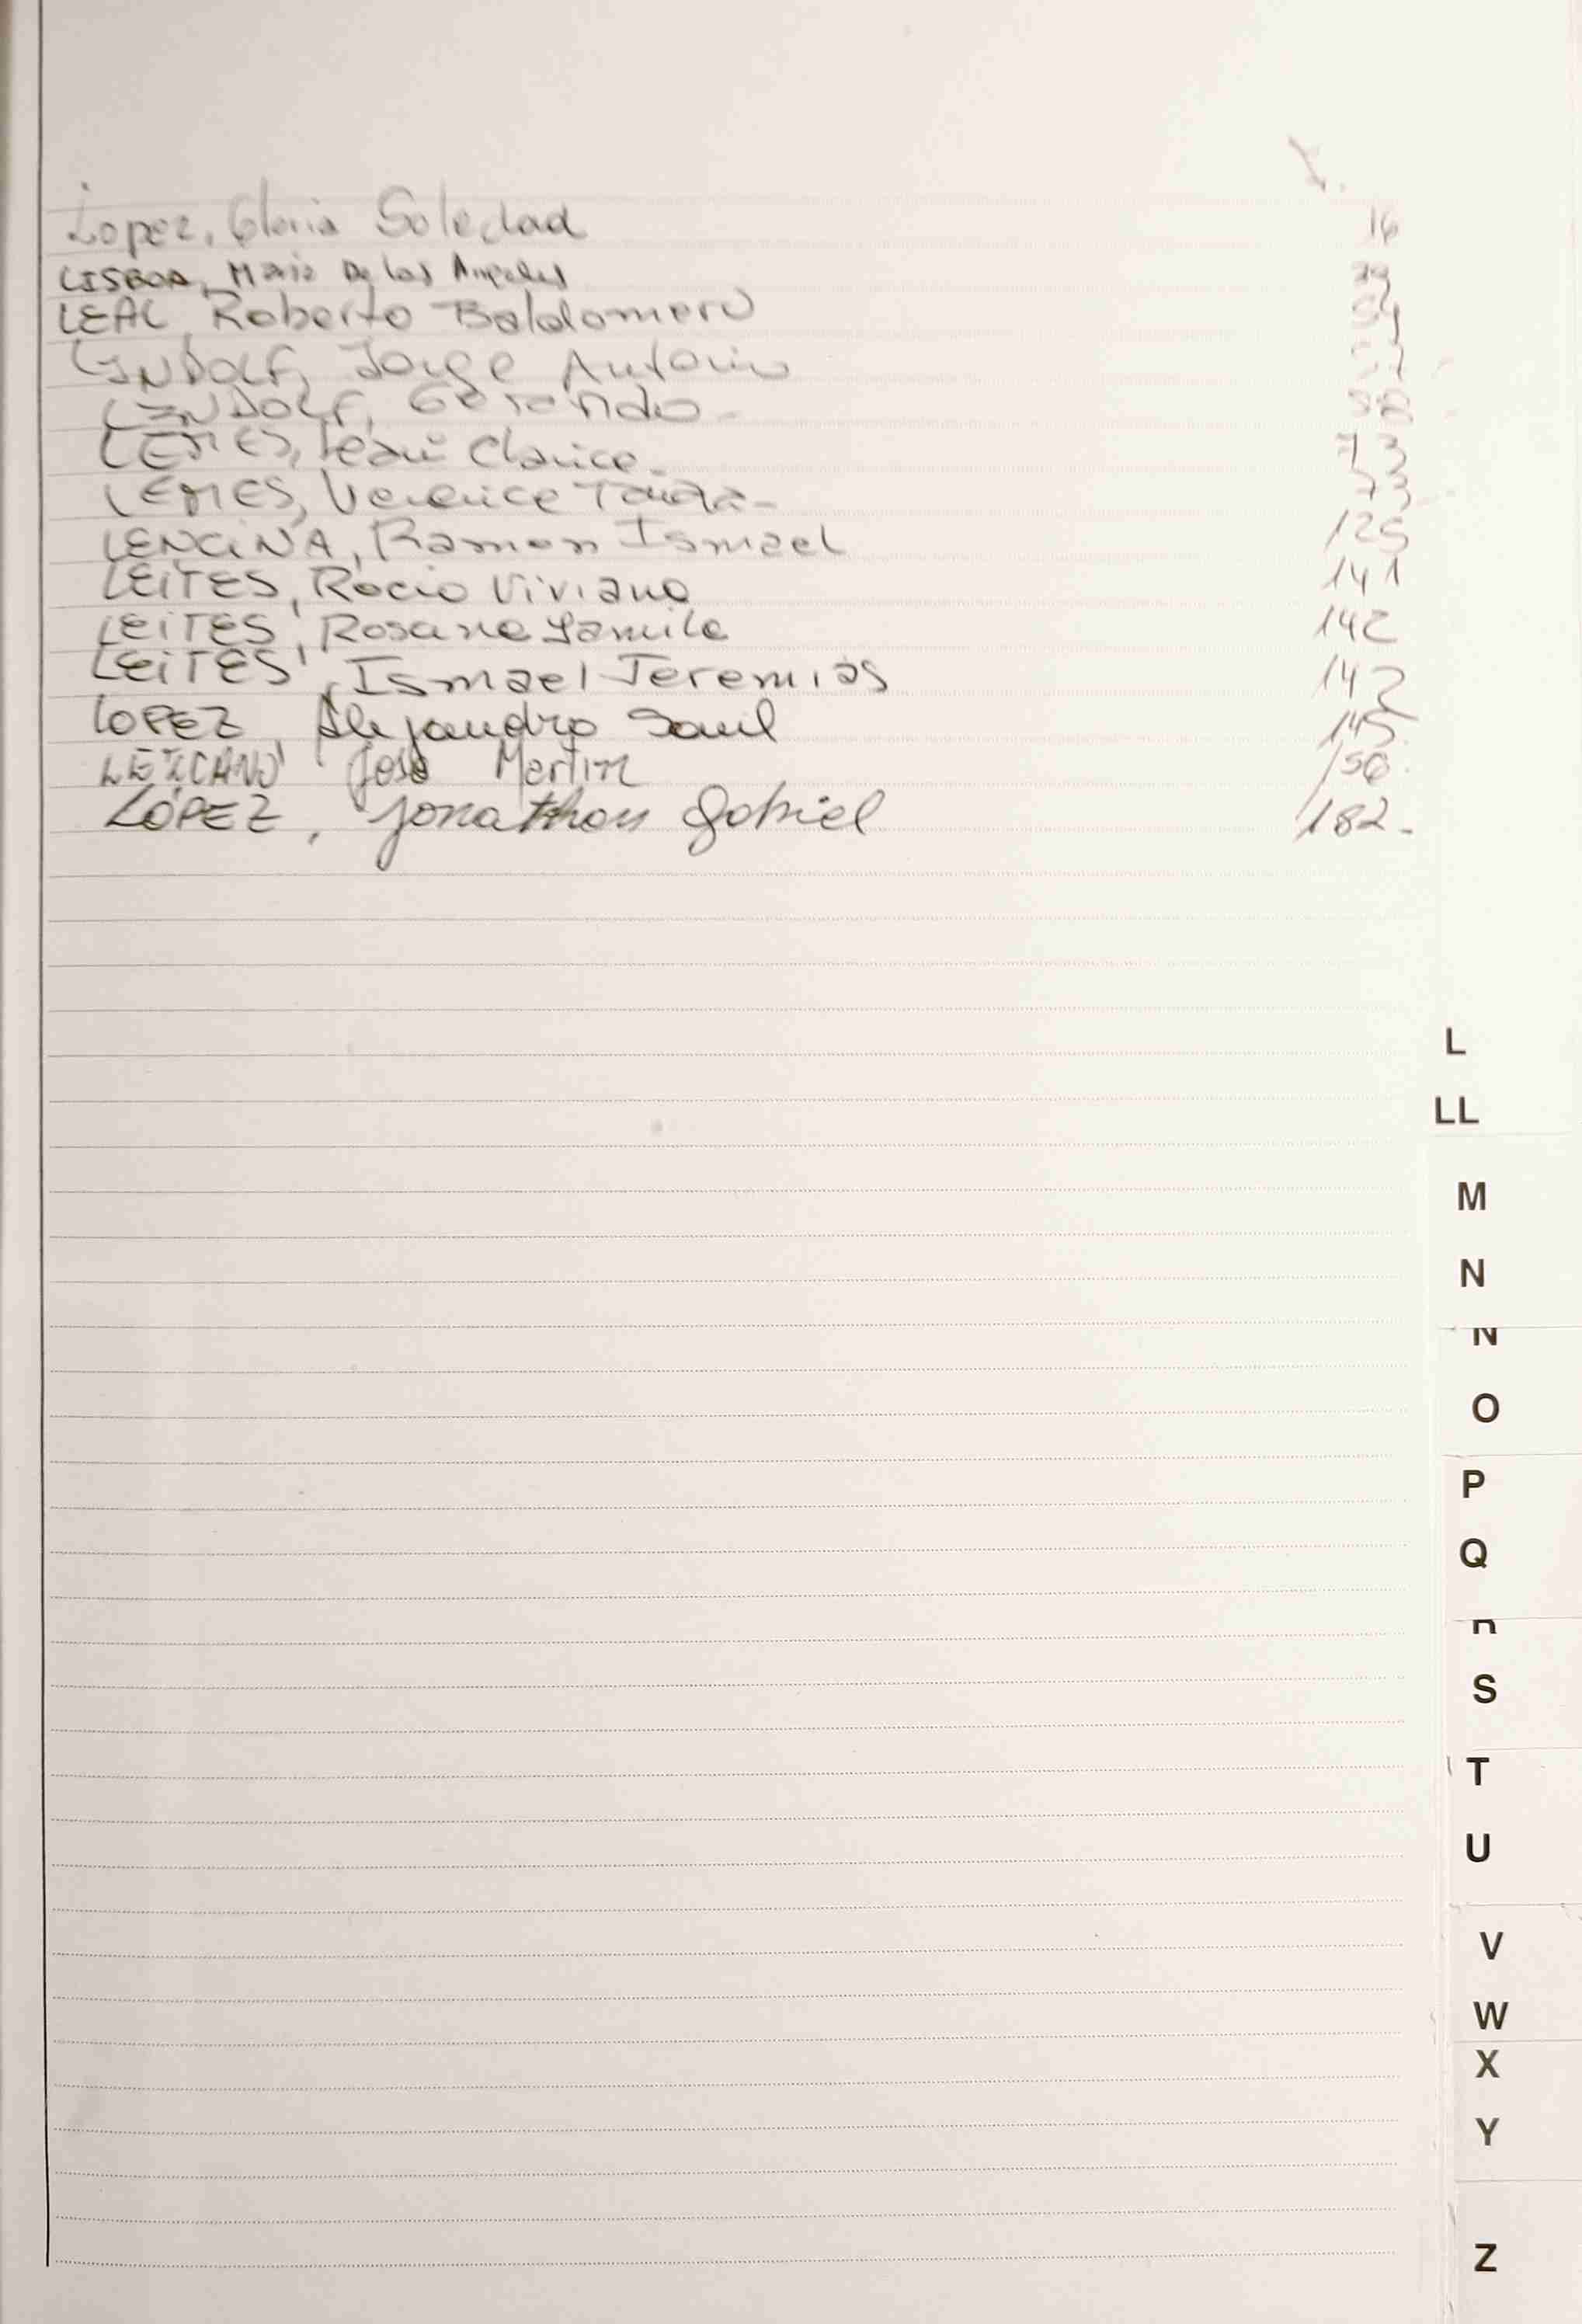 Lopez, Gloria Soledad 16
LISBOA, Maria De los Angeles 39
LEAL, Roberto Baldomero 54
LINDOLF, Jorge Antonio
LINDOLF, 58
LEMES, Clarice 73
LEMES, Verenice 73
LENCINA, Ramon Ismael 125
LEITES, Rocio Viviana 141
LEITES, Rosana Yamila 142
LEITES, Ismael Jeremias 142
LOPEZ, Alejandro Saul 145
LEZCANO Jose Martin 156
LÓPEZ, Jonathan Gabriel 182-
L
LL
M
N
N
O
P
Q
R
S
T
U
V
W
X
Y
Z